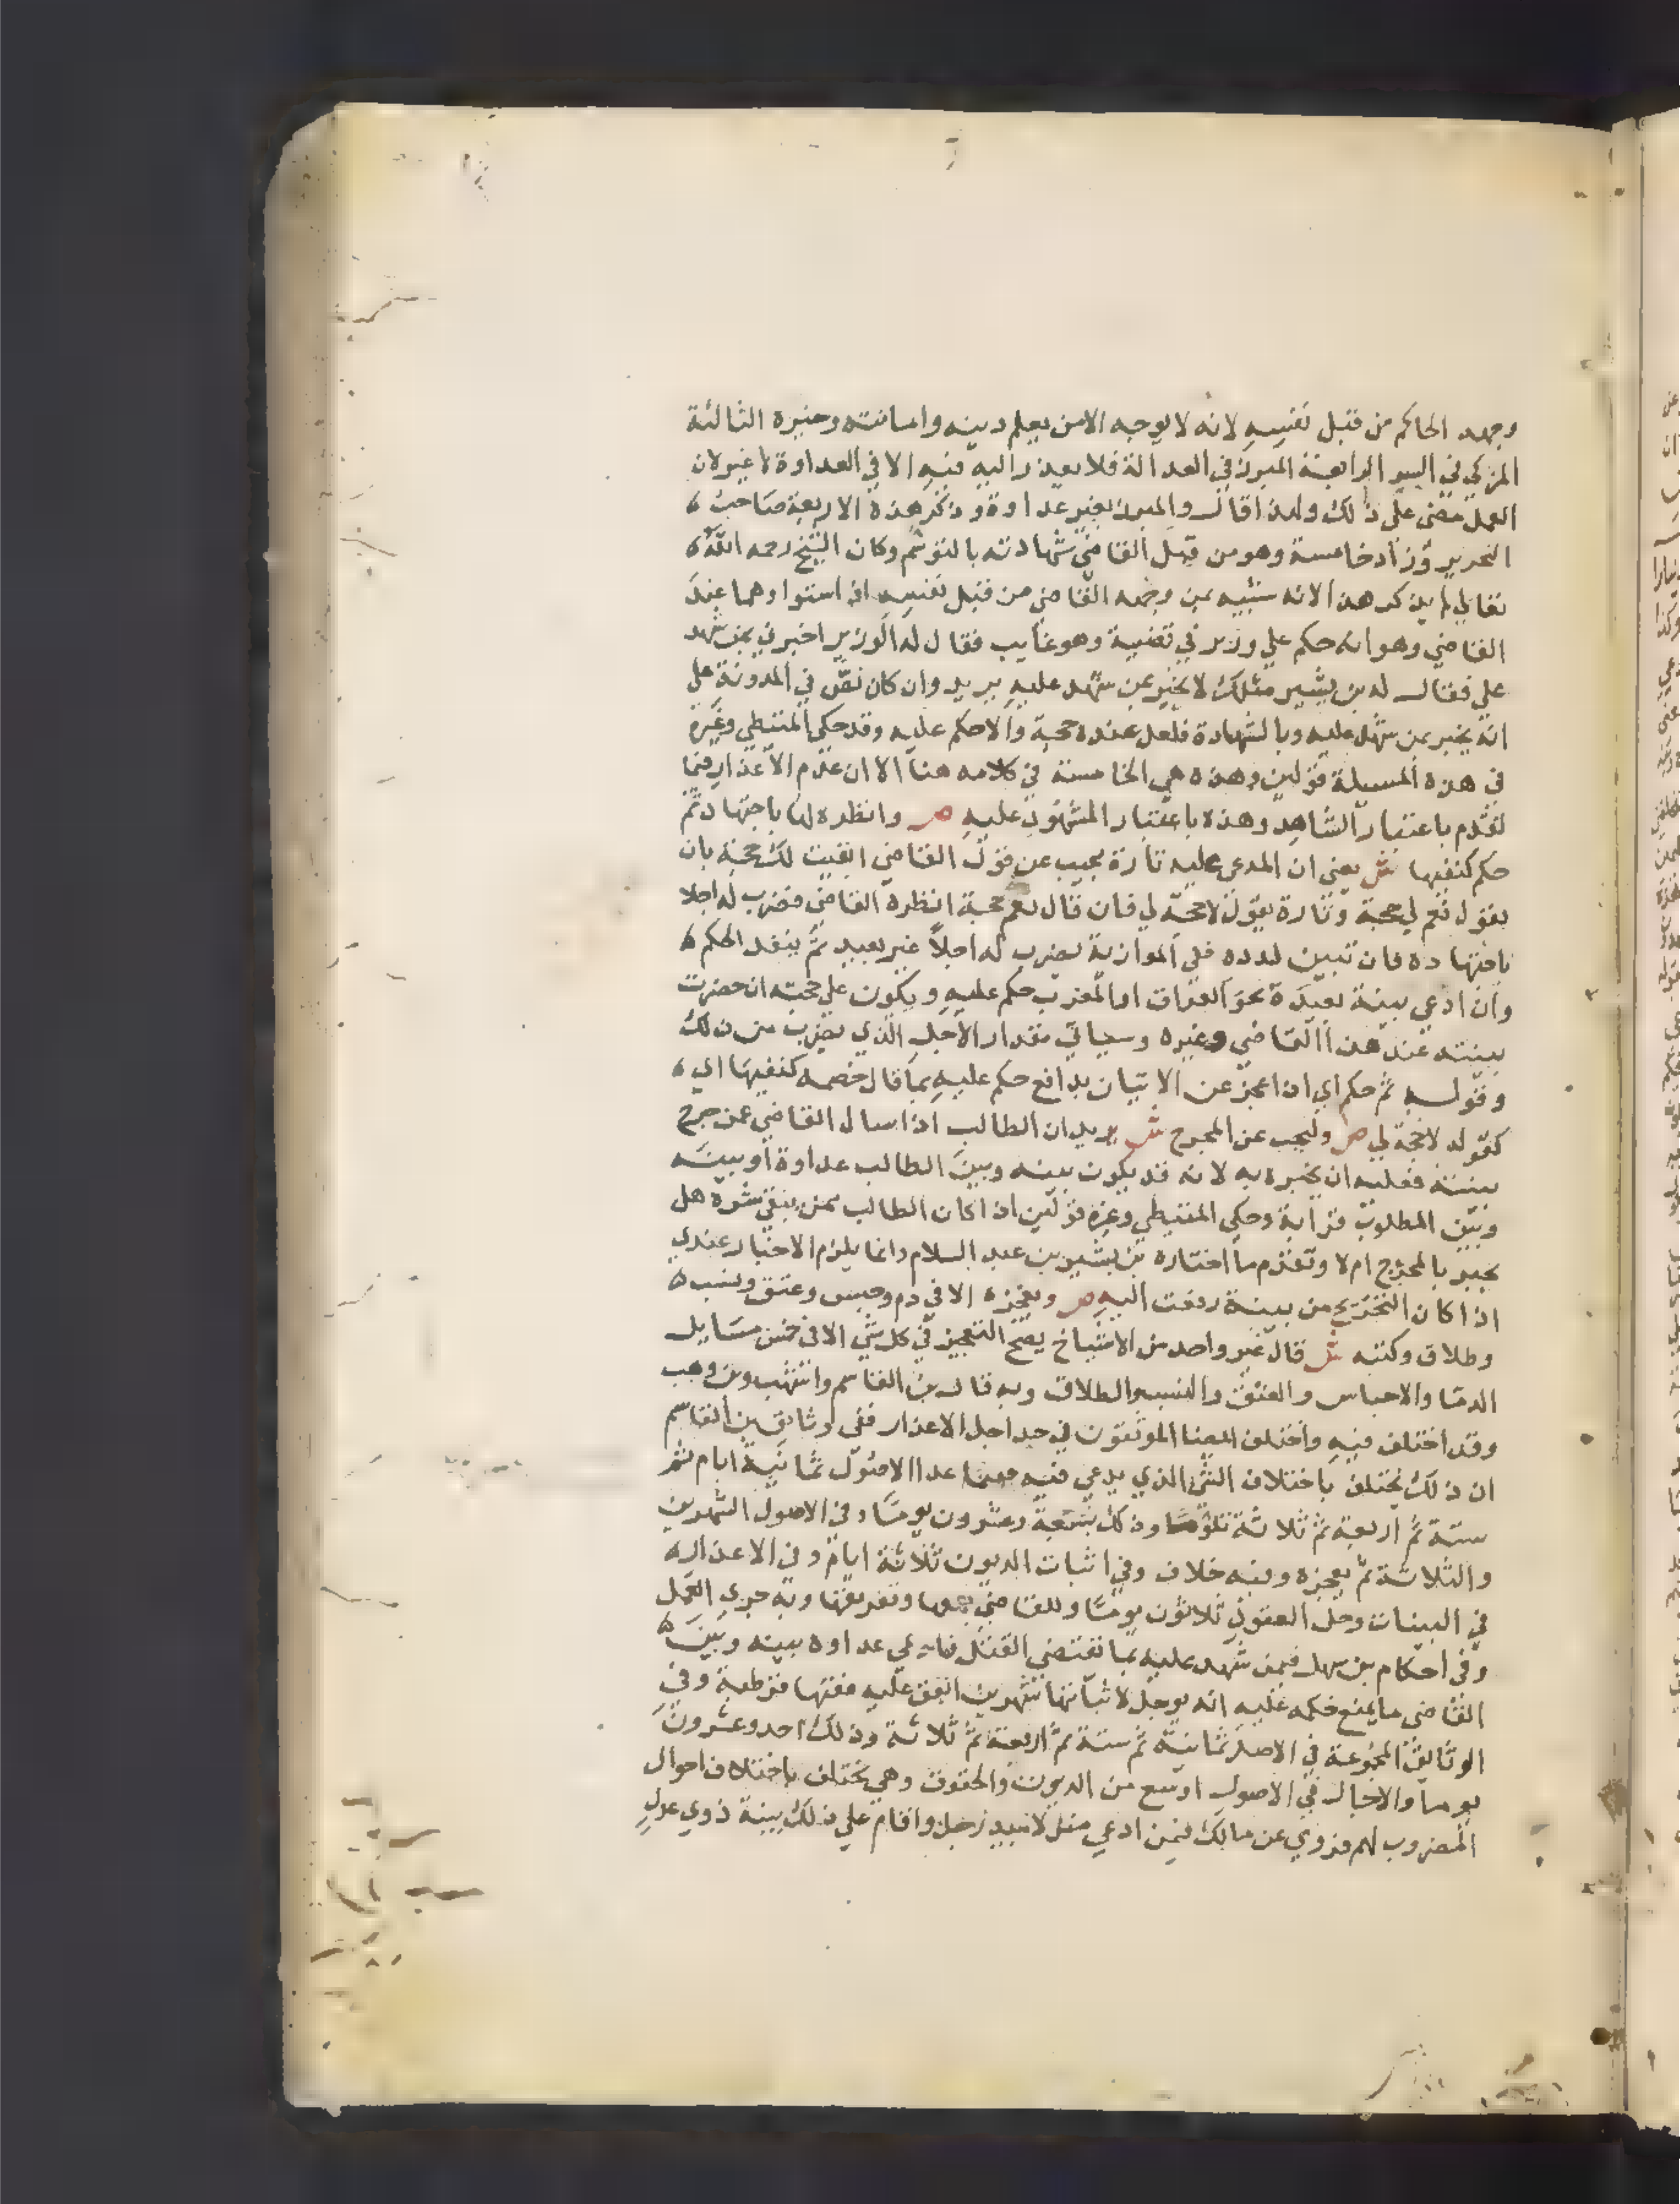 وجهه الحاكم من قبل نفسه لانه لا يوجه الا من يعلم دينه وامانته وخبره الثالثة
المزكي في السر الرابعة المبرز في العدالة فلا يعذر اليه فيه الا في العداوة لا غير لان
العمل مضى على ذلك ولهذا قال والمبرز بغير عداوة وذكر هذه الاربعة صاحب
التحرير وزاد خامسة وهو من قبل القاضي شهادته بالتوسم وكان الشيخ رحمه الله
تعالى لم يذكر هذا لانه شبيه بمن وجهه القاضي من قبل نفسه اذ استواوهما عند
القاضي وهو انه حكم علي وزير في قضية وهو غايب فقال له الوزير اخبرني بمن شهد
علي فقال له بن بشير مثلك لا يخبر بمن شهد عليه يريد وان كان نص في المدونة علي
انه يخبر بمن شهد عليه وبالشهادة فلعل عنده حجة والا حكم عليه وقد حكى المتيطي وغيره
في هذه المسيلة قولين وهذه هي الخامسة في كلامه هنا الا ان عدم الاعذار فيما
تقدم باعتبار الشاهد وهذه باعتبار المشهود عليه ص وانظره لها باجتهاد ثم
حكم كنفيها ش يعني ان المدعى عليه تارة يجيب عن قول القاضي ابقيت لك حجة بان
يقول نعم لي حجة وتارة يقول لا حجة لي فان قال نعم حجة انظره القاضي فضرب له اجلا
باجتهاده فان تبين لدده ففي الموازية يضرب له اجلا غير بعيد ثم ينفذ الحكم
وان ادعي بينة بعيدة نحو العراق او المغرب حكم عليه ويكون علي حجته ان حضرت
بينته عند هذا القاضي وغيره وسياتي مقدار الاجل الذي يضرب من ذلك
وقوله ثم حكم اي اذا عجز عن الاتيان بدافع حكم عليه بما قال خصمه كنفيها اي
كقوله لا حجة لي ص وليجب عن المجرح ش يريد ان الطالب اذا سال القاضي عمن جرح
بينته فعليه ان يخبره به لانه قد يكون بينه وبين الطالب عداوة او بينه
وبين المطلوب قرابة وحكي المتيطي وغيره قولين اذا كان الطالب ممن يتقى شره هل
يخبر بالمجرح ام لا وتقدم ما اختاره بن بشير بن عبد السلام وانما يلزم الاخبار عندي
اذا كان التجريح من بينة رفعت اليه ص ويعجزه الا في دم وحبس وعتق ونسب
وطلاق وكتبه ش قال غير واحد من الاشياخ يصح التعجيز في كل شي الا في خمس مسايل
الدما والاحباس والعتق والنسب والطلاق وبه قال بن القاسم واشهب وبن وهب
وقد اختلف فيه واختلف ايضا الموثقون في حد اجل الاعذار ففي وثايق بن القاسم
ان ذلك يختلف باختلاف الشي الذي يدعي فيه ففيما عدا الاصول ثمانية ايام ثم
ستة ثم اربعة ثم ثلاثة تلوما وذلك تسعة وعشرون يوما وفي الاصول الشهرين
والثلاثة ثم يعجزه وفيه خلاف وفي اثبات الديون ثلاثة ايام وفي الاعذار
في البينات وحل العقود ثلاثون يوما وللقاضي جمعها وتفريقها وبه جرى العمل
وفي احكام بن سهل فيمن شهد عليه بما تقتضي القتل فادعي عداوة بينه وبين
القاضي ما يمنع حكمه عليه انه يوجل لاثباتها شهرين اتفق عليه مفتيها قرطبة وفي
الوثايق المجموعة في الاصل ثمانية ثم ستة ثم اربعة ثم ثلاثة وذلك احد وعشرون
يوما والاجال في الاصول اوسع من الديون والحقوق وهي تختلف باختلاف احوال
المضروب لهم فروي عن مالك فيمن ادعي منزلا بيد رجل واقام علي ذلك بينة ذوي عدل